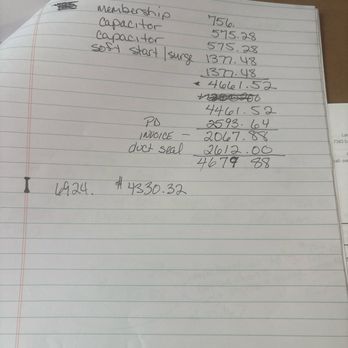 membership 756.
capacitor 575.28
capacitor 575.28
soft start/surge 1377.48
1377.48
* 4661.52
4461.52
PD 2593.64
INVOICE - 2067.88
duct seal 2612.00
4679 88
6924. $4330.32